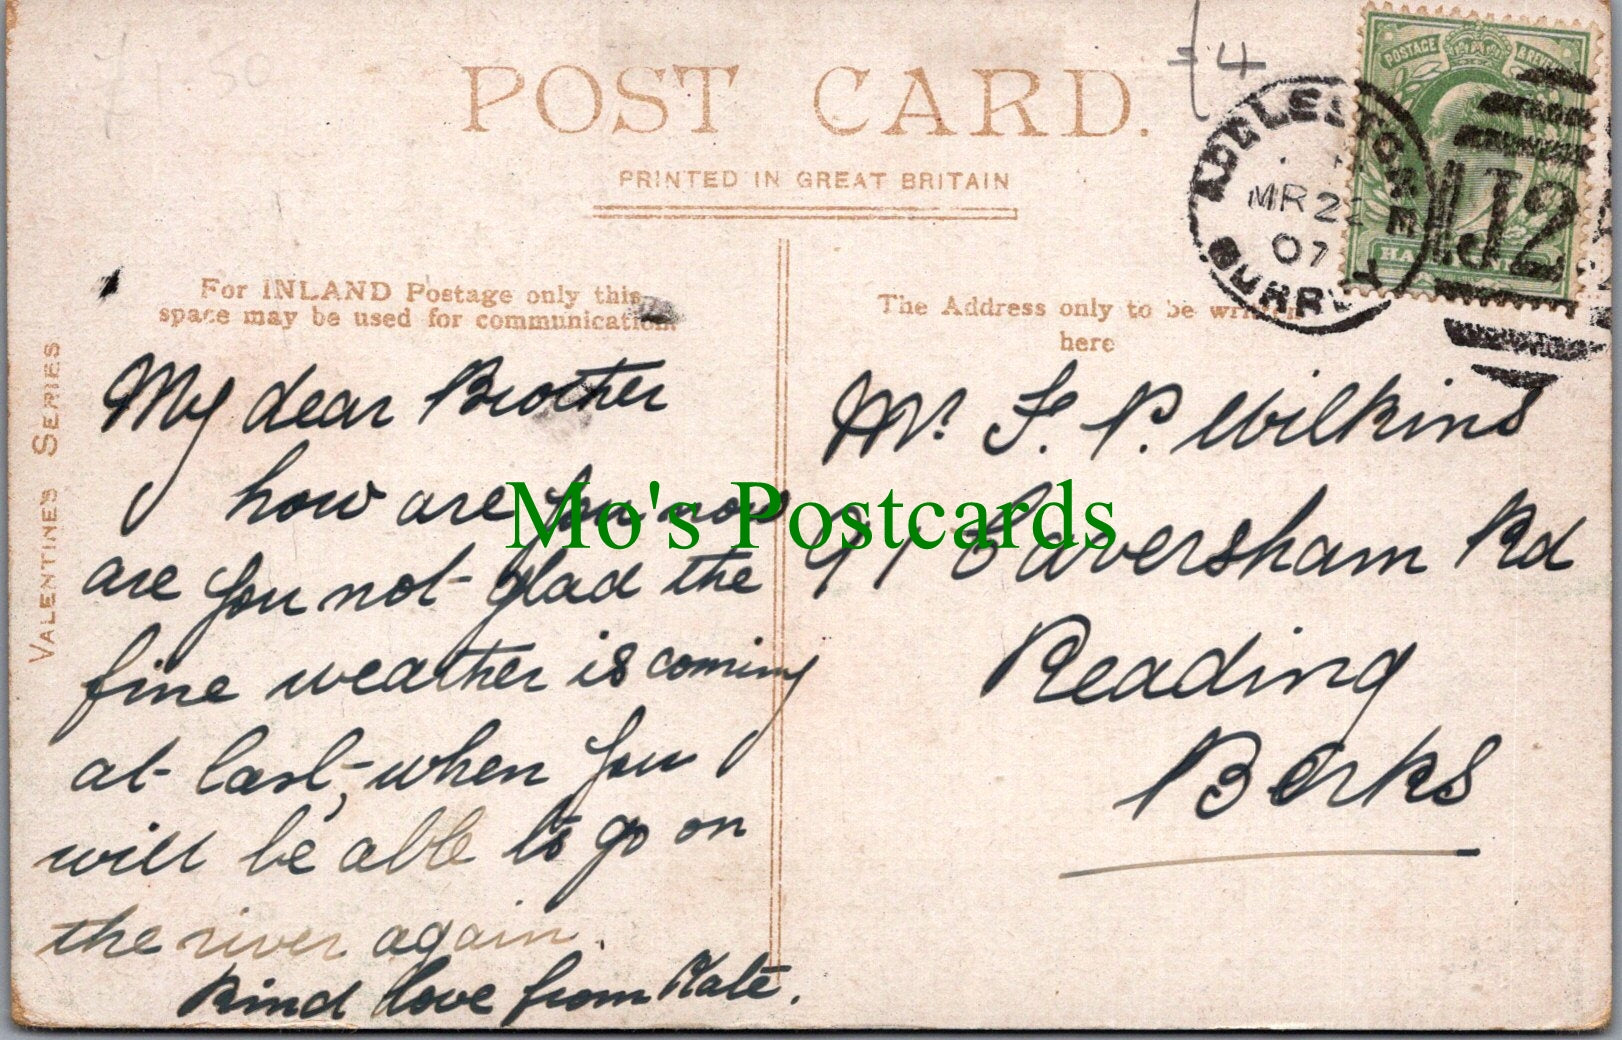 £1.50
£4
POST CARD.
PRINTED IN GREAT BRITAIN
ADDLESTONE
MR 2
07
SURREY
POSTAGE & REVENUE
J2
For INLAND Postage only this
space may be used for communication.
VALENTINE'S SERIES
My dear Brother
how are you now
are you not glad the
fine weather is coming
at last, when you
will be able to go on
the river again.
Kind love from Kate.
The Address only to be written
here
Mr. F. P. Wilkins
91 Caversham Rd
Reading
Berks
Mo's Postcards